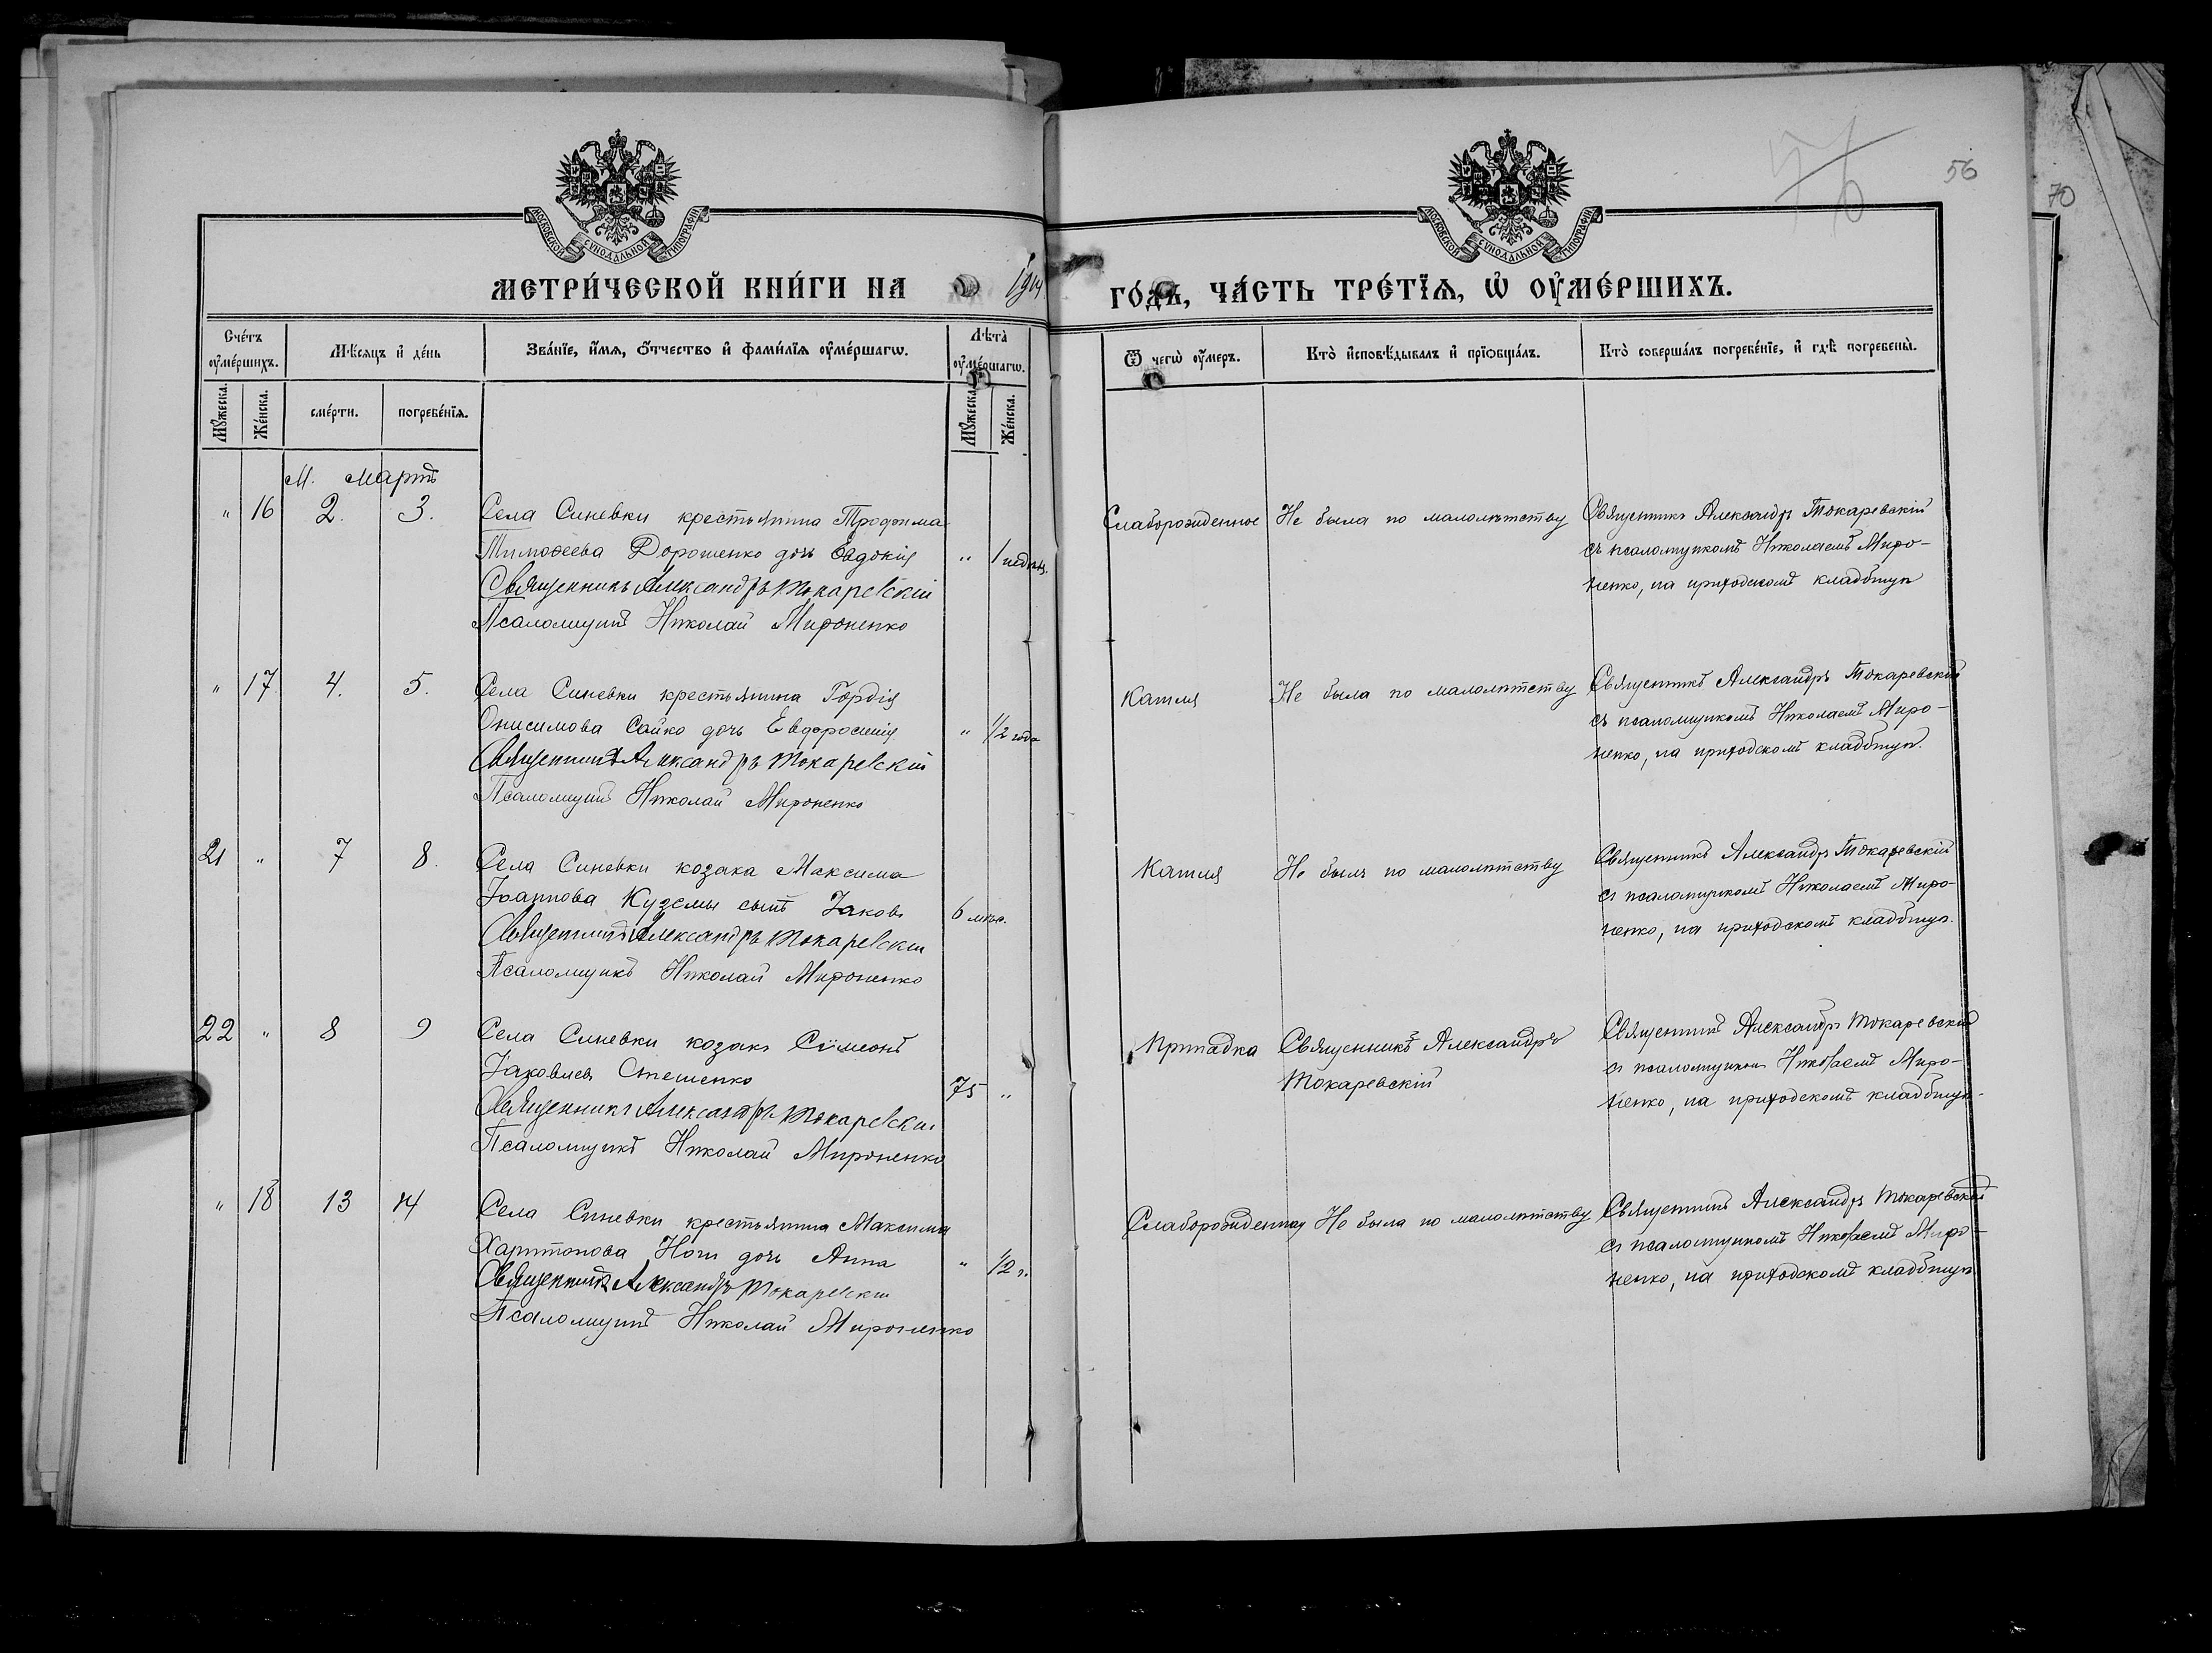 76
56
70
МОСКОВСКОЙ СѴНОДАЛЬНОЙ ТИПОГРАФІИ
МОСКОВСКОЙ СѴНОДАЛЬНОЙ ТИПОГРАФІИ
МЕТРИ́ЧЕСКОЙ КНИ́ГИ НА 1914 ГО́ДЪ, ЧА́СТЬ ТРЕ́ТЇѦ, Ѡ҆ ОУ҆МЕ́РШИХЪ.
Сче́тъ оу҆ме́ршихъ.
Мѣ́сяцъ и҆ де́нь
Зва́нїе, и҆́мѧ, ѻ҆́тчество и҆ фами́лїѧ оу҆ме́ршагѡ.
Лѣта̀ оу҆ме́ршагѡ.
Ѿ чегѡ̀ оу҆́меръ.
Кто̀ и҆сповѣ́дывалъ и҆ прїѡбща́лъ.
Кто̀ соверша́лъ погребе́нїе, и҆ гдѣ̀ погребены̀.
Мꙋ́жеска. Же́нска. сме́рти. погребе́нїѧ. Мꙋ́жеска. Же́нска.
М. Мартъ
" 16 2. 3. Села Синевки крестьянина Трофима
Тимоѳеева Дорошенко дочь Евдокія " 1 недѣл.
Священникъ Александръ Токаревскій
Псаломщикъ Николай Мироненко
Слаборожденное Не была по малолѣтству Священникъ Александръ Токаревскій
съ псаломщикомъ Николаемъ Миро-
ненко, на приходскомъ кладбищѣ
" 17. 4. 5. Села Синевки крестьянина Гордія
Онисимова Сайко дочь Евфросинія " 1/2 года
Священникъ Александръ Токаревскій
Псаломщикъ Николай Мироненко
Кашля Не была по малолѣтству Священникъ Александръ Токаревскій
съ псаломщикомъ Николаемъ Миро-
ненко, на приходскомъ кладбищѣ.
21 " 7 8. Села Синевки козака Максима
Іоаннова Куземы сынъ Іаковъ 6 мѣс.
Священникъ Александръ Токаревскій
Псаломщикъ Николай Мироненко
Кашля Не былъ по малолѣтству Священникъ Александръ Токаревскій
съ псаломщикомъ Николаемъ Миро-
ненко, на приходскомъ кладбищѣ.
22 " 8 9 Села Синевки козакъ Сѵмеонъ
Іаковлевъ Стешенко 75 "
Священникъ Александръ Токаревскій
Псаломщикъ Николай Мироненко
Припадка Священникъ Александръ
Токаревскій
Священникъ Александръ Токаревскій
съ псаломщикомъ Николаемъ Миро-
ненко, на приходскомъ кладбищѣ.
" 18 13 14 Села Синевки крестьянина Максима
Харитонова Ночи дочь Анна " 1/2 г.
Священникъ Александръ Токаревскій
Псаломщикъ Николай Мироненко
Слаборожденная Не была по малолѣтству Священникъ Александръ Токаревскій
съ псаломщикомъ Николаемъ Миро-
ненко, на приходскомъ кладбищѣ